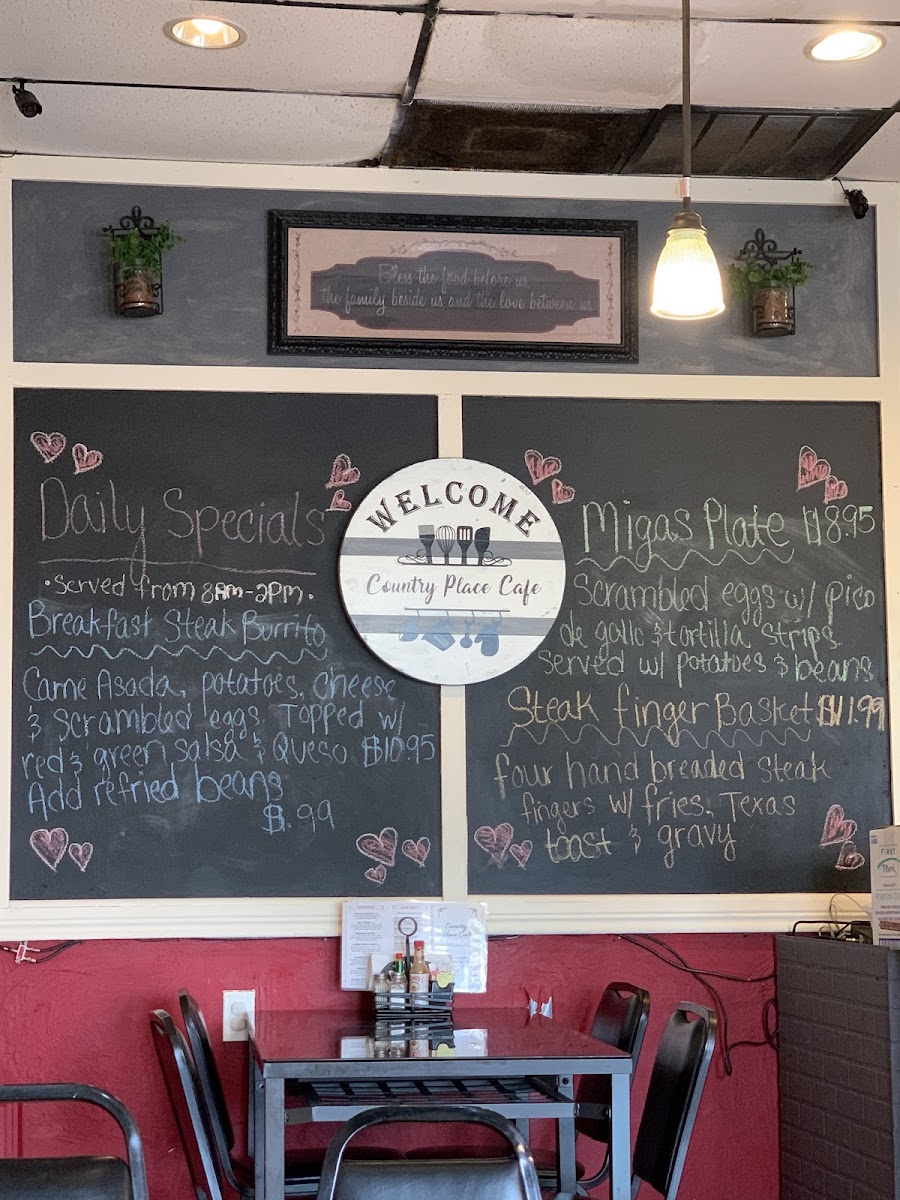 Bless the food before us
the family beside us and the love between us
WELCOME
Country Place Cafe
Daily Specials
• Served from 8AM-2PM •
Breakfast Steak Burrito
Carne Asada, potatoes, cheese
& scrambled eggs. Topped w/
red & green salsa & Queso $10.95
Add refried beans
$.99
Migas Plate $8.95
Scrambled eggs w/ pico
de gallo & tortilla strips.
Served w/ potatoes & beans
Steak finger Basket $11.99
four hand breaded steak
fingers w/ fries, Texas
toast & gravy
Country
Place Cafe
FIRST